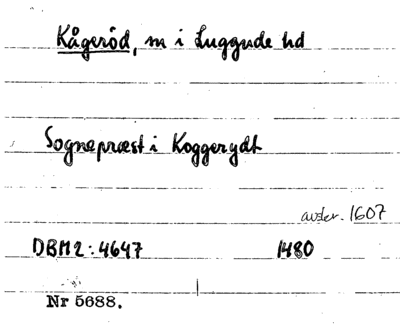 Kågeröd, sn i Luggude hd
Sognepræst i Koggerydt
avskr. 1607
DBM 2:4647 1480
Nr 5688.